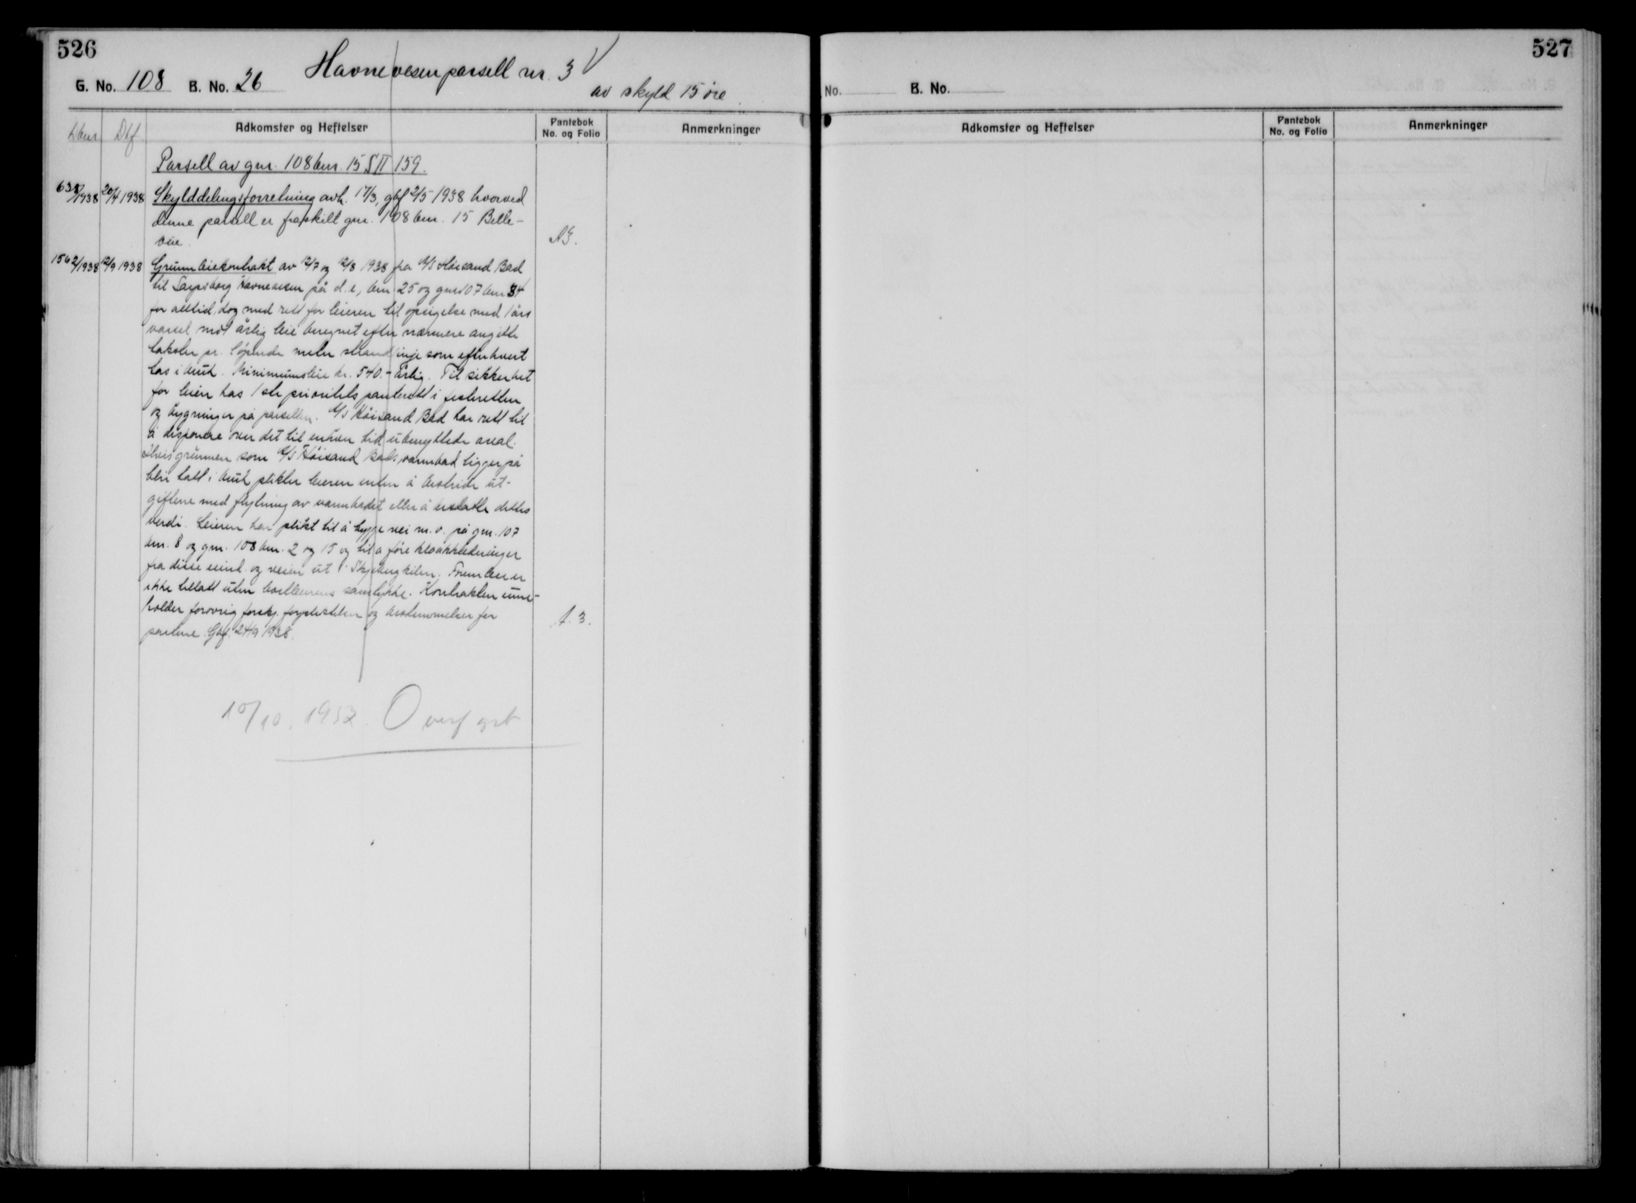 526
Havnevesen parsell nr. 3
G. No. 108 B. No. 26
av skyld 15 øre
Dbnr Dbf Adkomster og Heftelser Pantebok No. og Folio Anmerkninger
Parsell av gnr. 108 bnr. 15 S II 159.
638/1938 20/4 1938 Skylddelingsforretning avh. 17/3, gbf 2/5 1938 hvorved
denne parsell er fraskilt gnr. 108 bnr. 15 Belle-
vue. A3.
1562/1938 2/9 1938 Grunnleiekontrakt av 2/7 og 2/8 1938 fra A/S Höisand Bad
til Sarpsborg havnevesen på d.e., bnr. 25 og gnr. 107 bnr. 84
for alltid, dog med rett for leieren til opsigelse med 1 års
varsel mot årlig leie beregnet efter nærmere angitte
takster pr. löpende meter strandlinje som efterhvert
tas i bruk. Minimumsleie kr. 540.- årlig. Til sikkerhet
for leien has 1ste prioritets panterett i festeretten
og bygninger på parsellen. A/S Höisand Bad har rett til
å disponere over det til enhver tid ubenyttede areal.
Hvis grunnen som A/S Höisand Bads varmbad ligger på
blir tatt i bruk plikter leieren enten å bestride ut-
giftene med flytning av varmbadet eller å erstatte dettes
verdi. Leieren har plikt til å bygge vei m.v. på gnr. 107
bnr. 8 og gnr. 108 bnr. 2 og 15 og til å före kloakkledninger
fra disse eiend. og veien ut i Skjebergkilen. Fremleie er
ikke tillatt uten bortleierens samtykke. Kontrakten inne-
holder forövrig forskj. forpliktelser og bestemmelser for
partene. Gbf. 24/9 1938. A. 3.
10/10. 1952. Overført
527
No. B. No.
Adkomster og Heftelser Pantebok No. og Folio Anmerkninger